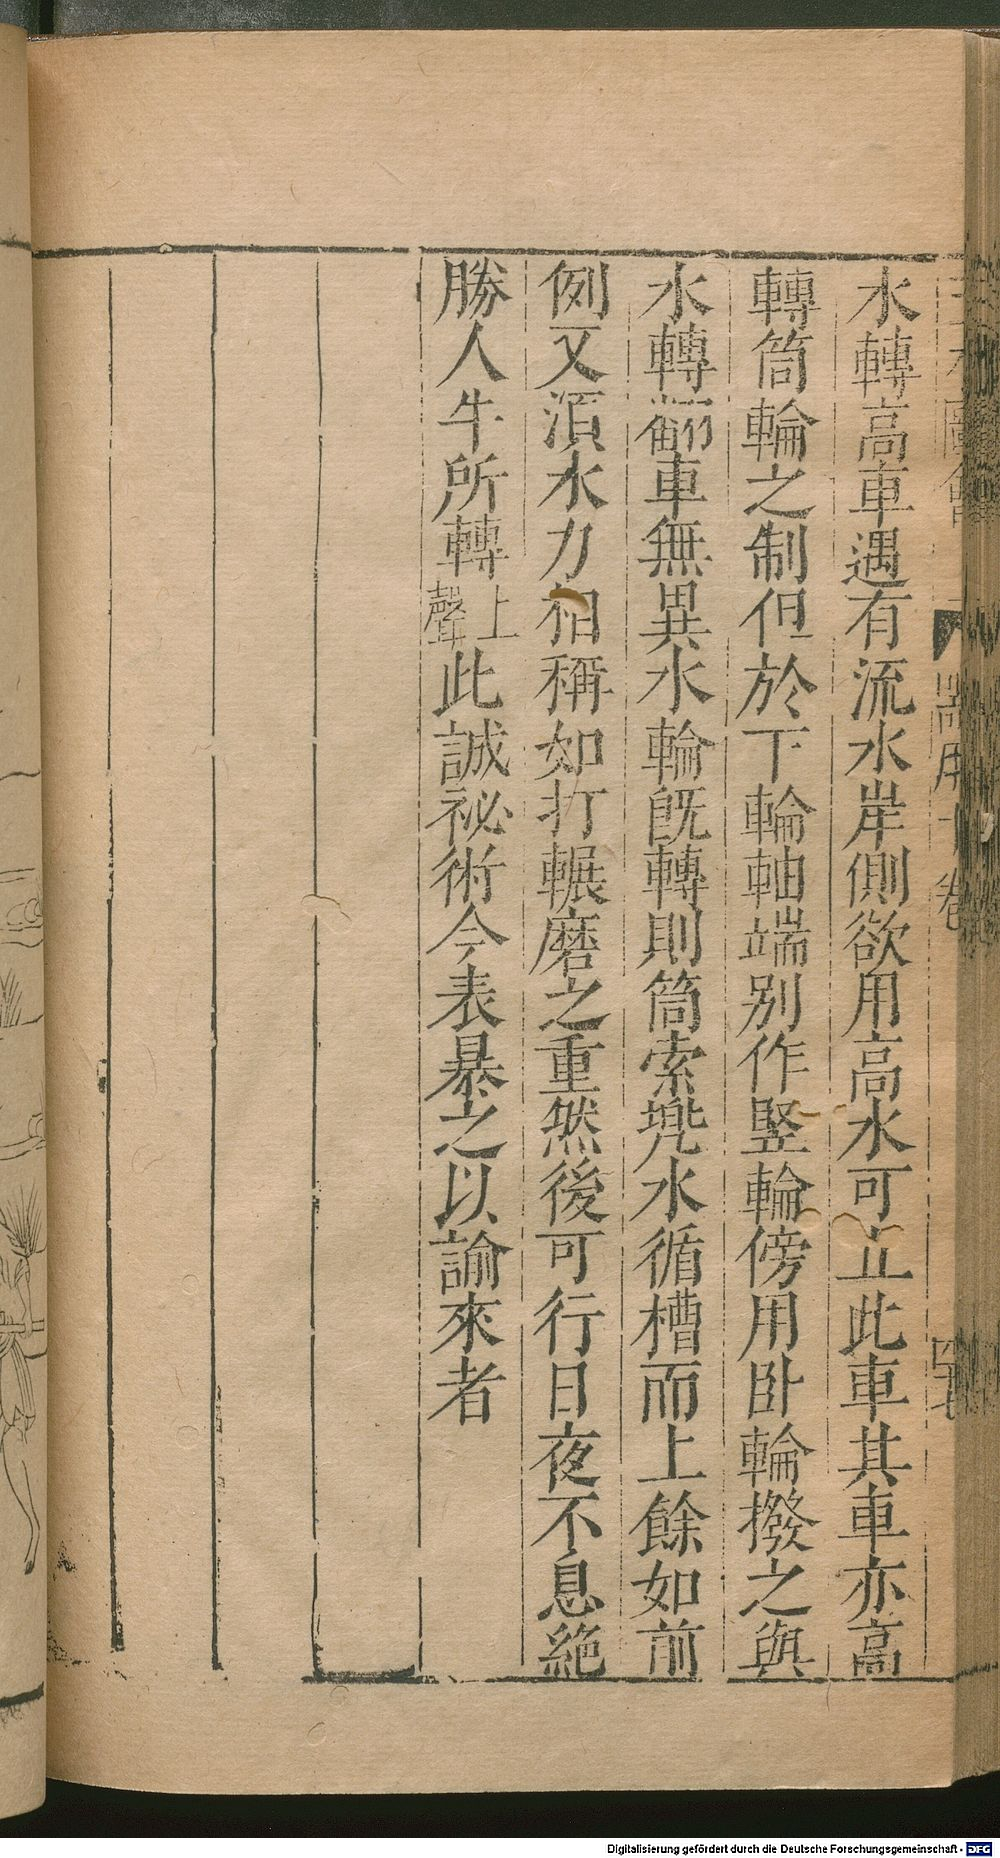 水轉高車遇有流水岸側欲用高水可立此車其車亦高
轉筒輪之制但於下輪軸端別作竪輪傍用卧輪撥之與
水轉翻車無異水輪旣轉則筒索兠水循槽而上餘如前
例又湏水力相稱如打輾磨之重然後可行日夜不息絶
勝人牛所轉上聲此誠祕術今表暴之以諭來者
Digitalisierung gefördert durch die Deutsche Forschungsgemeinschaft - DFG